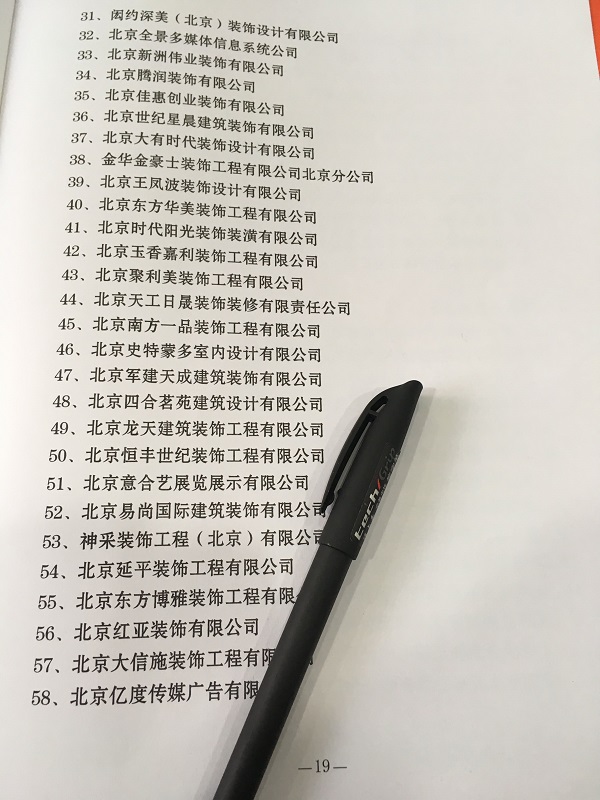 31、闳约深美（北京）装饰设计有限公司
32、北京全景多媒体信息系统公司
33、北京新洲伟业装饰有限公司
34、北京腾润装饰有限公司
35、北京佳惠创业装饰有限公司
36、北京世纪星晨建筑装饰有限公司
37、北京大有时代装饰设计有限公司
38、金华金豪士装饰工程有限公司北京分公司
39、北京王凤波装饰设计有限公司
40、北京东方华美装饰工程有限公司
41、北京时代阳光装饰装潢有限公司
42、北京玉香嘉利装饰工程有限公司
43、北京聚利美装饰工程有限公司
44、北京天工日晟装饰装修有限责任公司
45、北京南方一品装饰工程有限公司
46、北京史特蒙多室内设计有限公司
47、北京军建天成建筑装饰有限公司
48、北京四合茗苑建筑设计有限公司
49、北京龙天建筑装饰工程有限公司
50、北京恒丰世纪装饰工程有限公司
51、北京意合艺展览展示有限公司
52、北京易尚国际建筑装饰有限公
53、神采装饰工程（北京）有限公
54、北京延平装饰工程有限公司
55、北京东方博雅装饰工程有限
56、北京红亚装饰有限公司
57、北京大信施装饰工程有
58、北京亿度传媒广告有限
tech/Grip
—19—